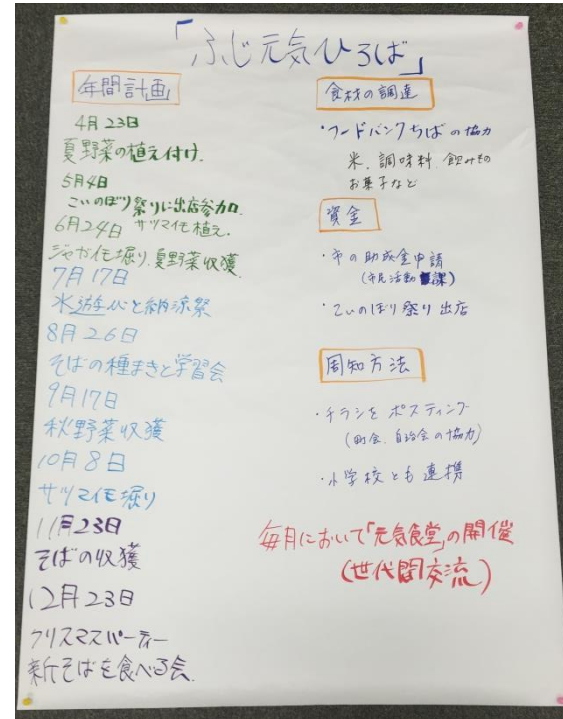 「ふじ元気ひろば」
年間計画
4月23日
夏野菜の植え付け.
5月4日
こいのぼり祭りに出店参加.
6月24日 サツマイモ植え.
ジャガイモ堀り.夏野菜収獲.
7月17日
水遊びと納涼祭
8月26日
そばの種まきと学習会
9月17日
秋野菜収獲
10月8日
サツマイモ堀り
11月23日
そばの収獲
12月23日
クリスマスパーティー
新そばを食べる会.
食材の調達
・フードバンクちばの協力
米、調味料 飲みもの
お菓子など
資金
・市の助成金申請
(市民活動課)
・こいのぼり祭り出店
周知方法
・チラシをポスティング
(町会、自治会の協力)
・小学校とも連携
毎月において「元気食堂」の開催
(世代間交流)